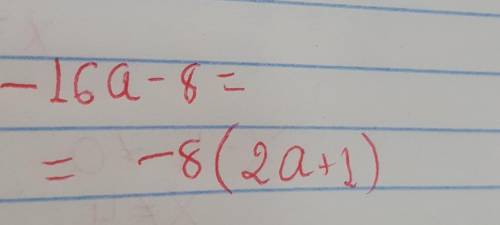 -16a-8=
= -8(2a+1)